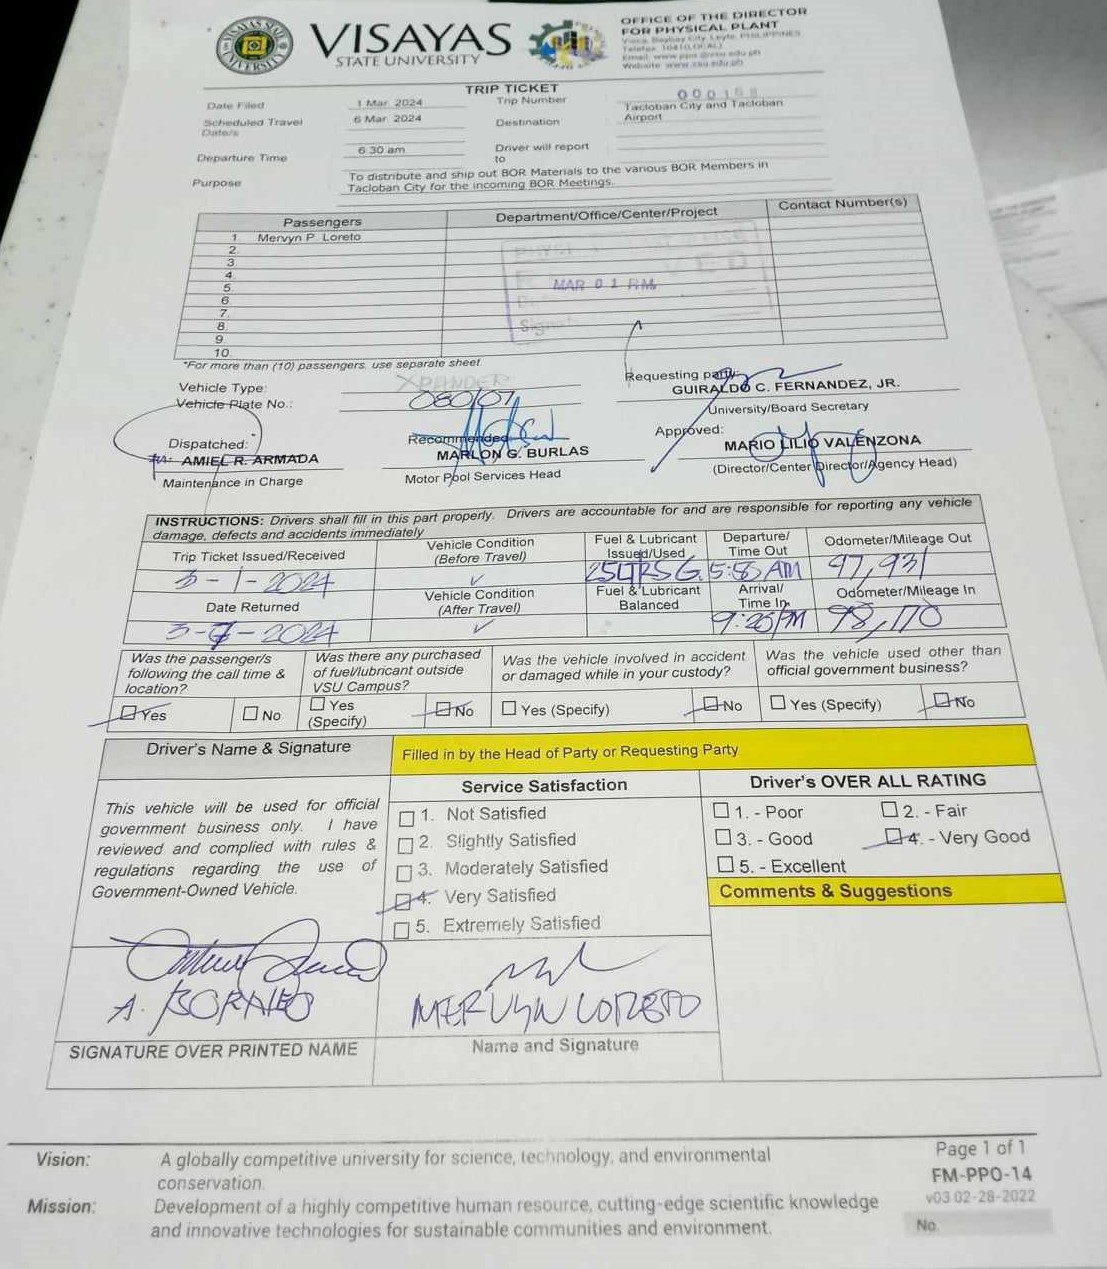 VISAYAS
STATE UNIVERSITY
OFFICE OF THE DIRECTOR
FOR PHYSICAL PLANT
Visca, Baybay City, Leyte, PHILIPPINES
Email: www.ppo@vsu.edu.ph
Website: www.vsu.edu.ph
TRIP TICKET
Date Filed 1 Mar. 2024 Trip Number 000198
Scheduled Travel Date/s 6 Mar. 2024 Destination Tacloban City and Tacloban Airport
Departure Time 6:30 am Driver will report to
Purpose To distribute and ship out BOR Materials to the various BOR Members in
Tacloban City for the incoming BOR Meetings.
Passengers Department/Office/Center/Project Contact Number(s)
1. Mervyn P. Loreto
2.
3.
4.
5. MAR 01
6.
7.
8.
9.
10.
*For more than (10) passengers, use separate sheet.
Vehicle Type: XPANDER
Vehicle Plate No.: 080107
Requesting party:
GUIRALDO C. FERNANDEZ, JR.
University/Board Secretary
Dispatched: Recommended: Approved:
AMIEL R. ARMADA MARLON G. BURLAS MARIO LILIO VALENZONA
Maintenance in Charge Motor Pool Services Head (Director/Center Director/Agency Head)
INSTRUCTIONS: Drivers shall fill in this part properly. Drivers are accountable for and are responsible for reporting any vehicle
damage, defects and accidents immediately
Trip Ticket Issued/Received Vehicle Condition (Before Travel) Fuel & Lubricant Issued/Used Departure/Time Out Odometer/Mileage Out
3-1-2024 ✓ 25LTRS G. 5:55 AM 97,931
Date Returned Vehicle Condition (After Travel) Fuel & Lubricant Balanced Arrival/Time In Odometer/Mileage In
3-6-2024 ✓ 9:25 PM 98,170
Was the passenger/s following the call time & location? Was there any purchased of fuel/lubricant outside VSU Campus? Was the vehicle involved in accident or damaged while in your custody? Was the vehicle used other than official government business?
Yes No Yes (Specify) No Yes (Specify) No Yes (Specify) No
Driver's Name & Signature Filled in by the Head of Party or Requesting Party
Service Satisfaction Driver's OVER ALL RATING
This vehicle will be used for official
government business only. I have
reviewed and complied with rules &
regulations regarding the use of
Government-Owned Vehicle.
1. Not Satisfied
2. Slightly Satisfied
3. Moderately Satisfied
4. Very Satisfied
5. Extremely Satisfied
1. - Poor 2. - Fair
3. - Good 4. - Very Good
5. - Excellent
Comments & Suggestions
A. BORNEO MERVYN LORETO
SIGNATURE OVER PRINTED NAME Name and Signature
Vision: A globally competitive university for science, technology, and environmental
conservation.
Mission: Development of a highly competitive human resource, cutting-edge scientific knowledge
and innovative technologies for sustainable communities and environment.
Page 1 of 1
FM-PPO-14
v03 02-28-2022
No.